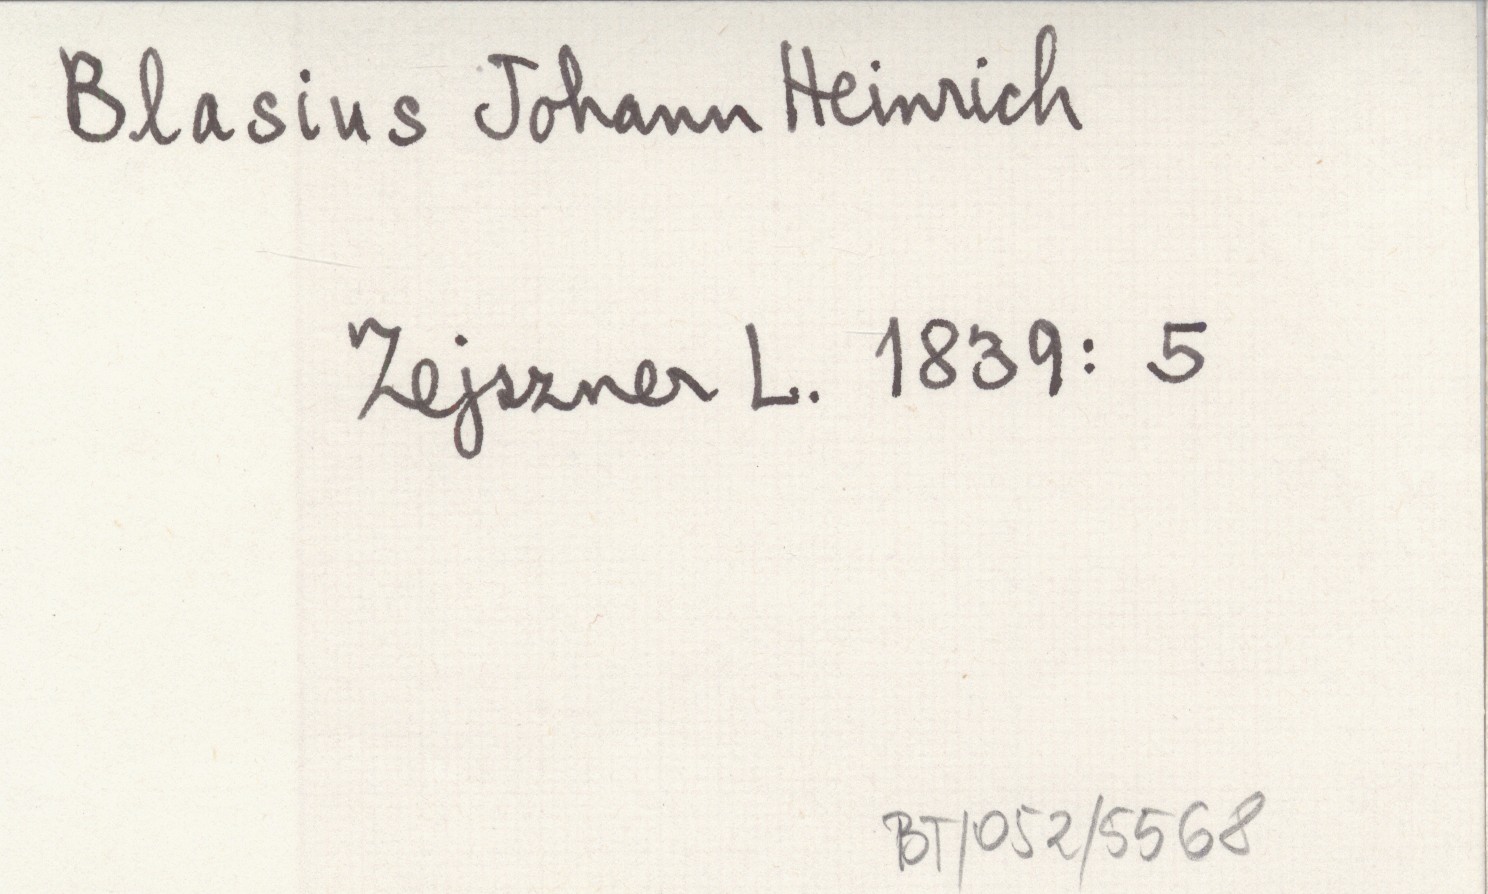 Blasius Johann Heinrich
Zejszner L. 1839: 5
BT/052/5568